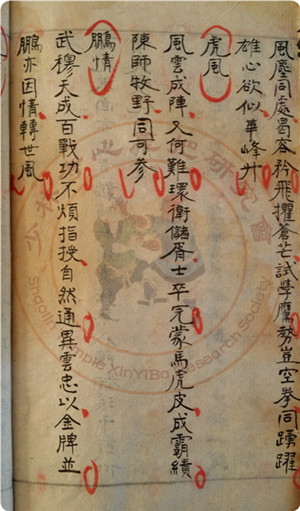 風塵同處曷容矜飛擢蒼茫試學鷹勢豈空拳同踴躍
雄心欲似華峰升
虎風
風雲成陣又何難環衛儲胥士卒完蒙馬虎皮成霸績
陳師牧野同可參
鵬情
武穆天成百戰功不煩指授自然通異雲忠以金牌並
鵬亦因情轉世風
少林 研究會
Shaolin Temple XinYiBa Research Society